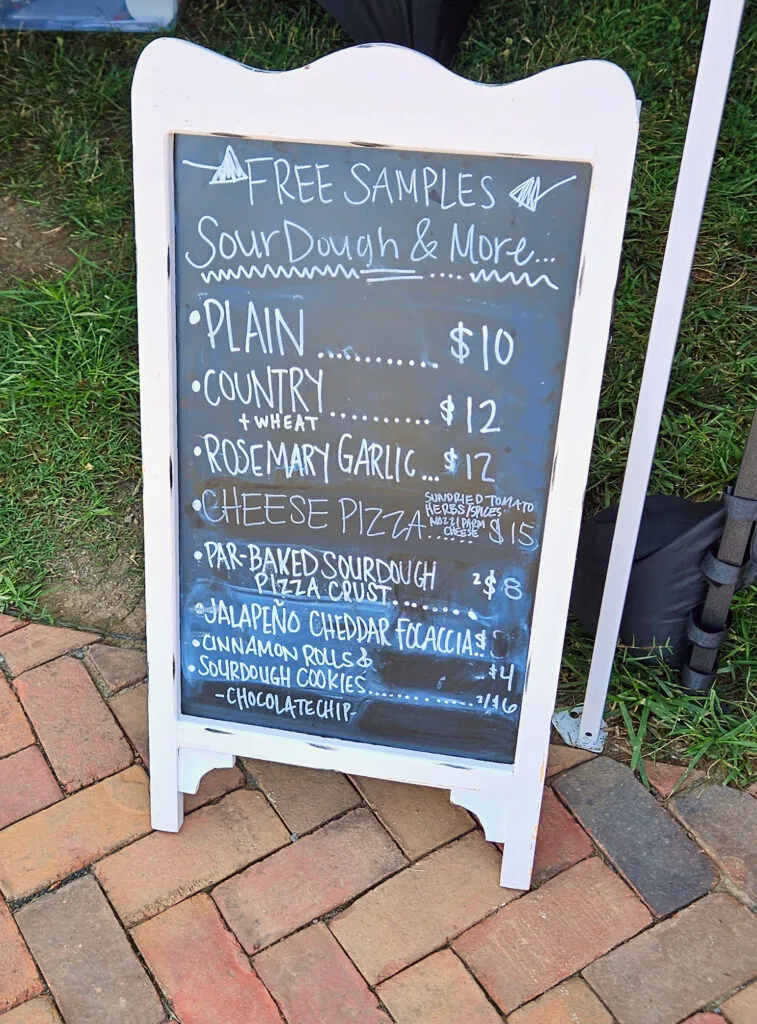 FREE SAMPLES
SourDough & More...
• PLAIN ............ $10
• COUNTRY
+ WHEAT .......... $12
• ROSEMARY GARLIC ... $12
• CHEESE PIZZA ...... SUNDRIED TOMATO
HERBS/SPICES
MOZZ/PARM
CHEESE $15
• PAR-BAKED SOURDOUGH
PIZZA CRUST ........ 2/$8
• JALAPEÑO CHEDDAR FOCACCIA $
• CINNAMON ROLLS & $4
• SOURDOUGH COOKIES ............ 2/$6
- CHOCOLATE CHIP